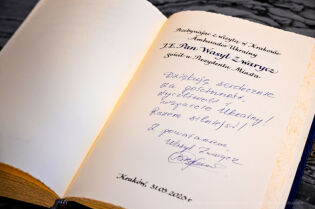 Przebywając z wizytą w Krakowie
Ambasador Ukrainy
J.E. Pan Wasyl Zwarycz
gościł u Prezydenta Miasta.
Dziękuję serdecznie
za gościnność,
życzliwość i
wsparcie Ukrainy!
Razem silniejsi!
Z poważaniem
Wasyl Zwarycz
Kraków, 31.05.2023 r.